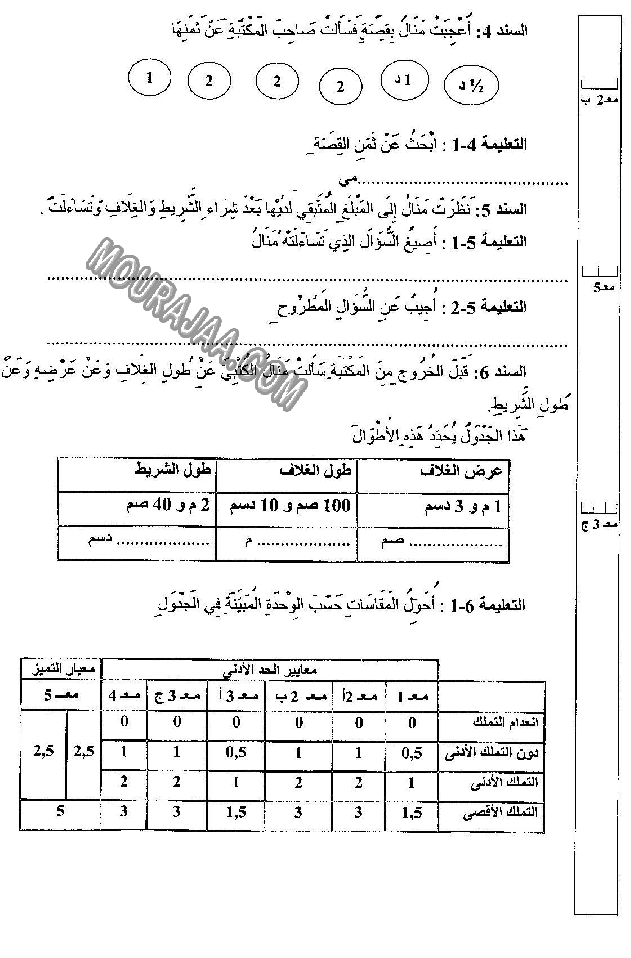 السند 4: أَعْجِبَتْ مَنَالُ بِقِصَّةٍ فَسَأَلَتْ صَاحِبَ المَكْتَبَةِ عَنْ ثَمَنِهَا
½ د 1 د 2 2 2 1
معـ 2 ب
التعليمة 4-1 : أَبْحَثُ عَنْ ثَمَنِ القِصَّةِ
..........................................مي
السند 5: نَظَرَتْ مَنَالُ إِلَى المَبْلَغِ المُتَبَقِّي لَدَيْهَا بَعْدَ شِرَاءِ الشَّرِيطِ وَالغِلَافِ وَتَسَاءَلَتْ .
التعليمة 5-1 : أَصِيغُ السُّؤَالَ الذِي تَسَاءَلَتْهُ مَنَالُ
معـ5
..........................................
التعليمة 5-2 : أُجِيبُ عَنِ السُّؤَالِ المَطْرُوحِ
..........................................
MOURAJAA.COM
السند 6: قَبْلَ الخُرُوجِ مِنَ المَكْتَبَةِ سَأَلَتْ مَنَالُ الكُتْبِيَّ عَنْ طُولِ الغِلَافِ وَعَنْ عَرْضِهِ وَعَنْ
طُولِ الشَّرِيطِ.
هَذَا الجَدْوَلُ يُحَدِّدُ هَذِهِ الأَطْوَالَ
عرض الغلاف طول الغلاف طول الشريط
1 م و 3 دسم 100 صم و 10 دسم 2 م و 40 صم
معـ 3 ج
.................. صم .................. م .................. دسم
التعليمة 6-1 : أُحَوِّلُ المَقَاسَاتِ حَسَبَ الوِحْدَةِ المُبَيَّنَةِ فِي الجَدْوَلِ
معايير الحد الأدنى معيار التميز
معـ 1 معـ 2أ معـ 2 ب معـ 3 أ معـ 3 ج معـ 4 معـ 5
انعدام التملك 0 0 0 0 0 0
دون التملك الأدنى 0,5 1 1 0,5 1 1 2,5 2,5
التملك الأدنى 1 2 2 1 2 2
التملك الأقصى 1,5 3 3 1,5 3 3 5